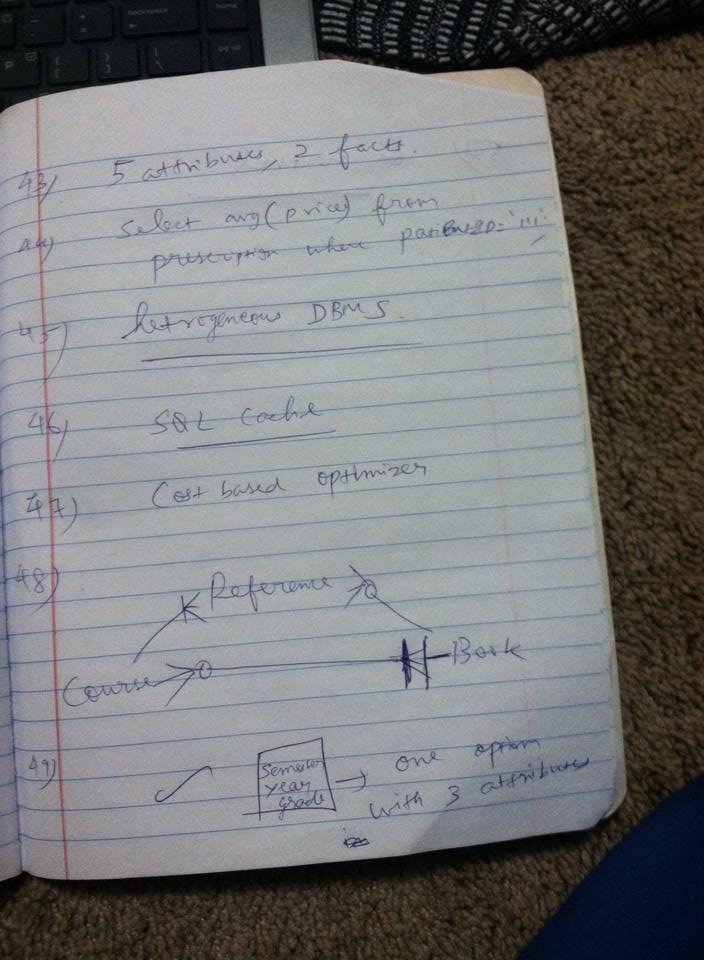 backspace
home
pg up
P
43) 5 attributes, 2 facts.
44) Select avg(price) from
prescription where patientID='111'
45) hetrogeneous DBMS.
46) SQL Cache
47) Cost based optimizer
48) Reference
Course
Book
49) Semester
year
grade
→ one option
with 3 attributes